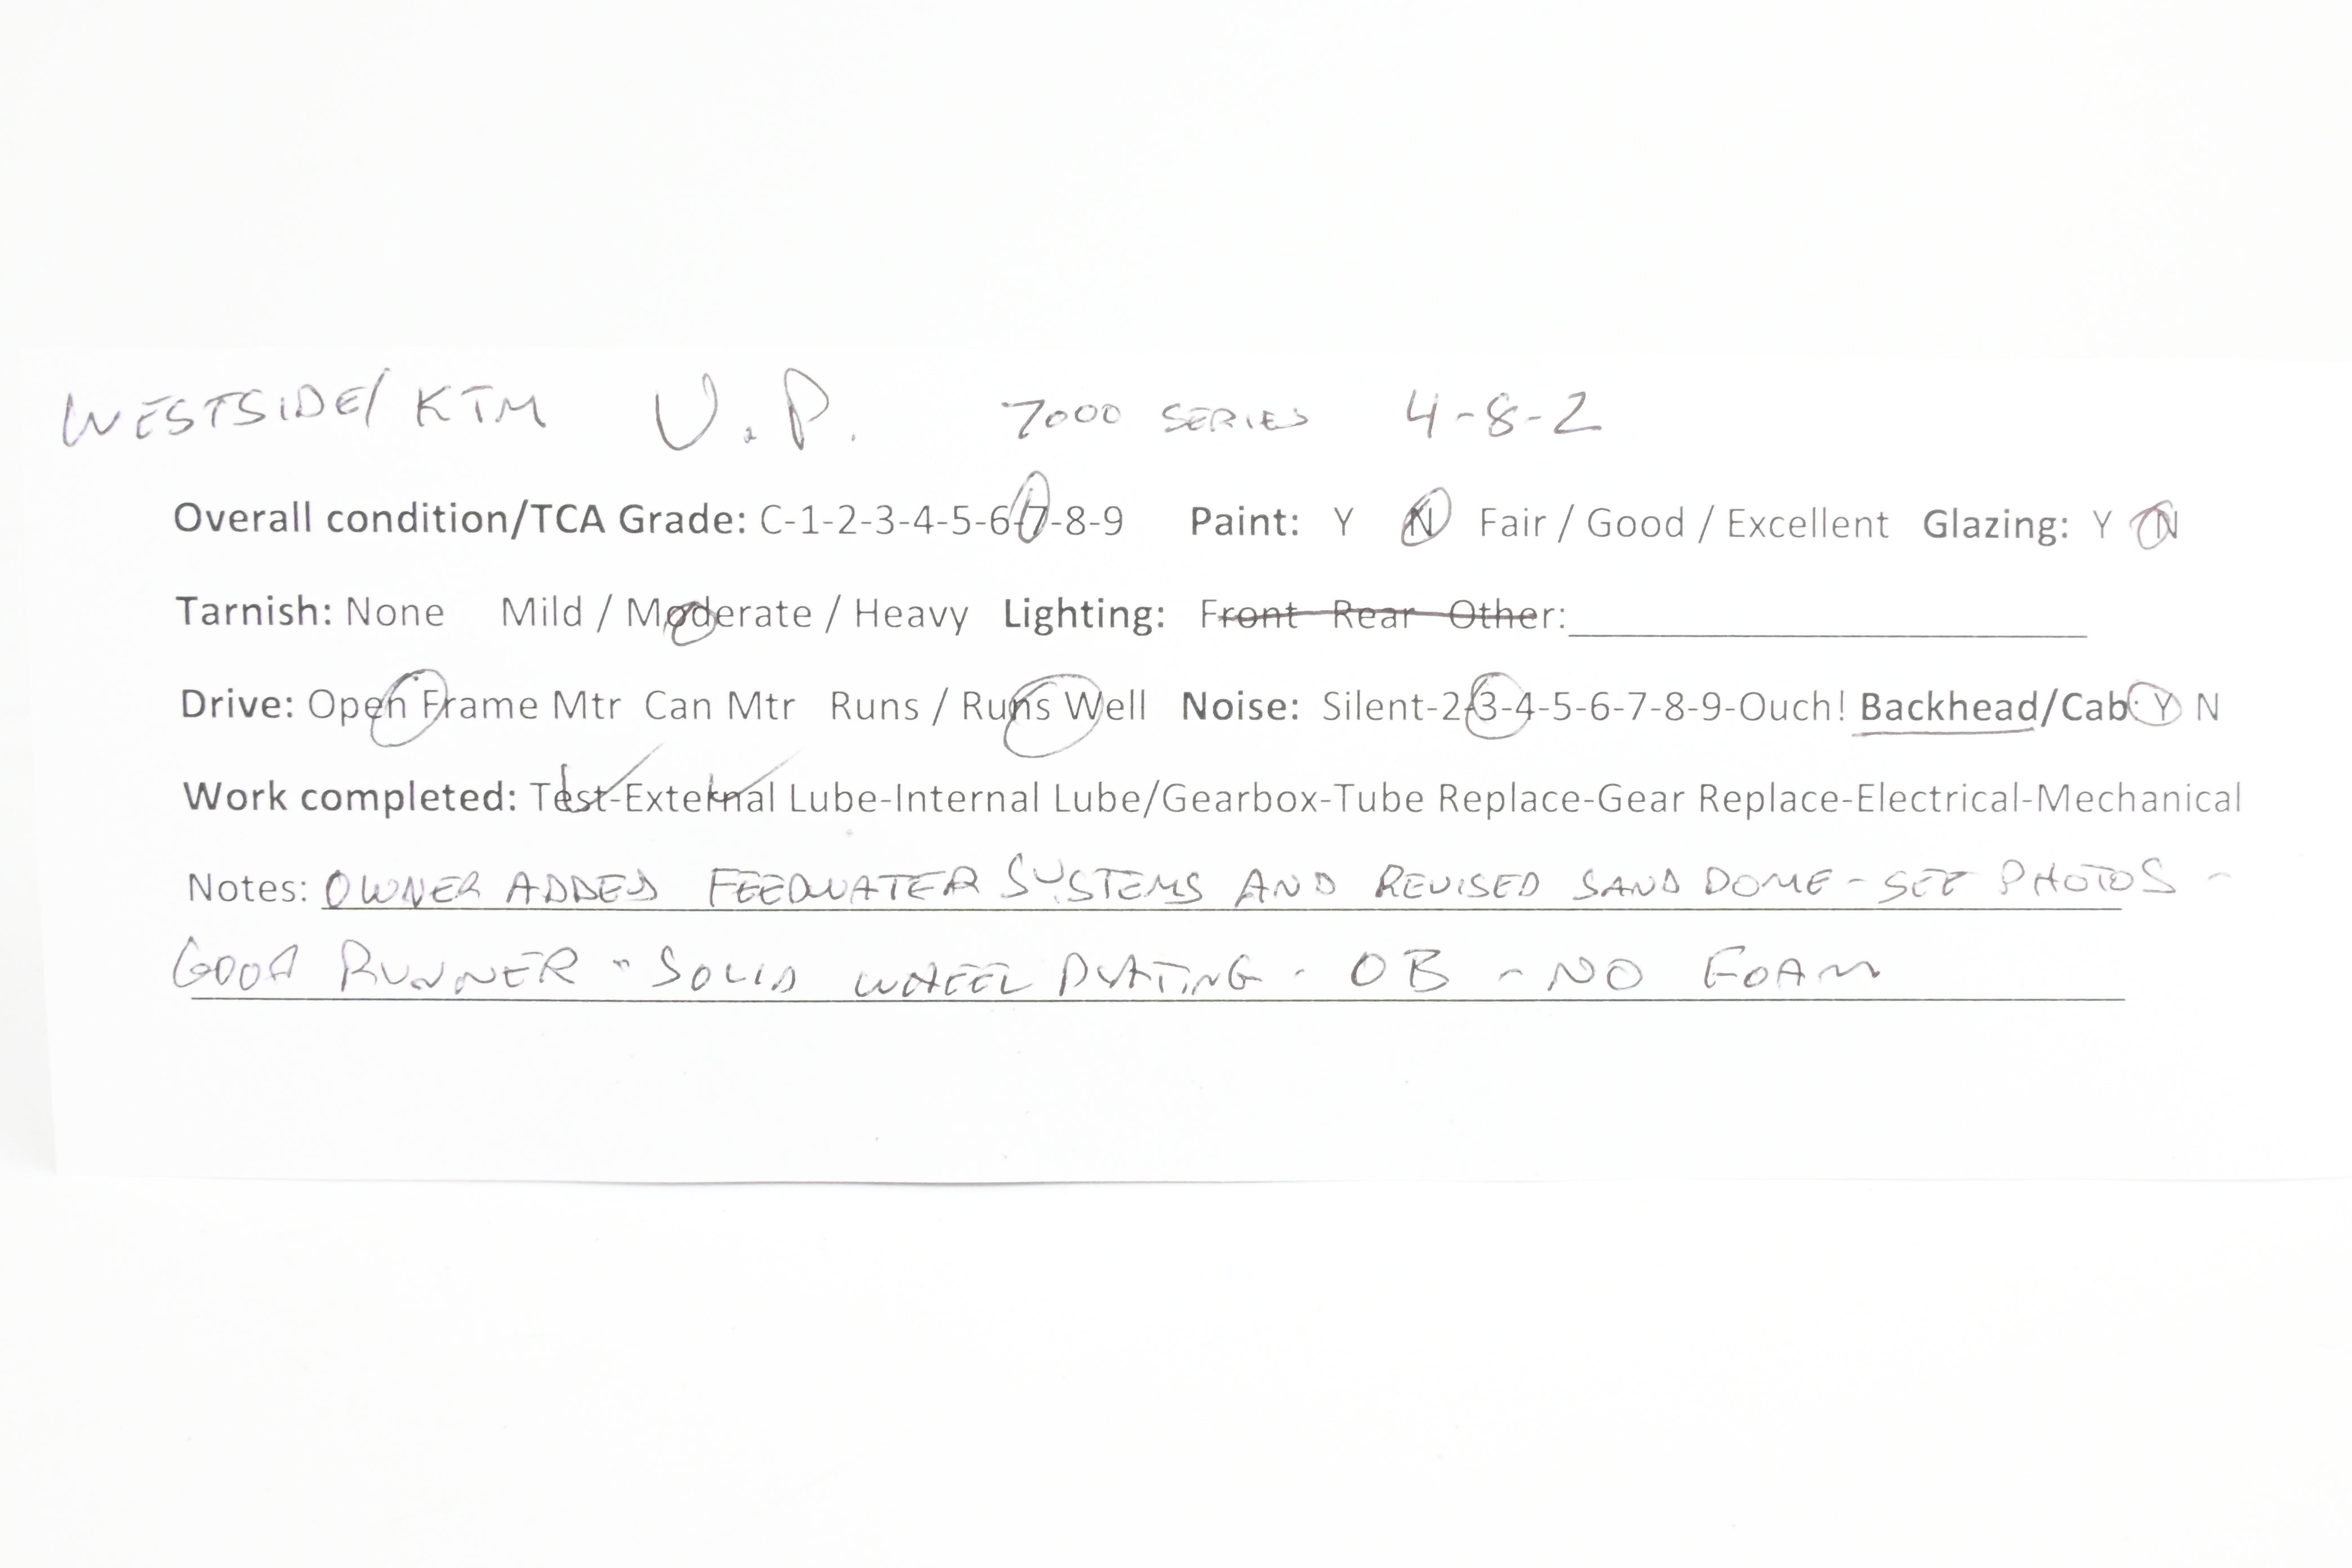 WESTSIDE/ KTM U.P. 7000 SERIES 4-8-2
Overall condition/TCA Grade: C-1-2-3-4-5-6-7-8-9 Paint: Y N Fair / Good / Excellent Glazing: Y N
Tarnish: None Mild / Moderate / Heavy Lighting: Front Rear Other:
Drive: Open Frame Mtr Can Mtr Runs / Runs Well Noise: Silent-2-3-4-5-6-7-8-9-Ouch! Backhead/Cab: Y N
Work completed: Test-External Lube-Internal Lube/Gearbox-Tube Replace-Gear Replace-Electrical-Mechanical
Notes: OWNER ADDED FEEDWATER SYSTEMS AND REVISED SAND DOME - SEE PHOTOS -
GOOD RUNNER - SOLID WHEEL PLATING - OB - NO FOAM